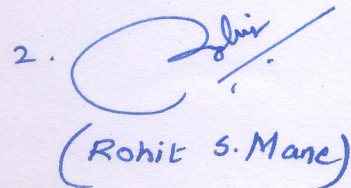 2.
(Rohit S. Mane)